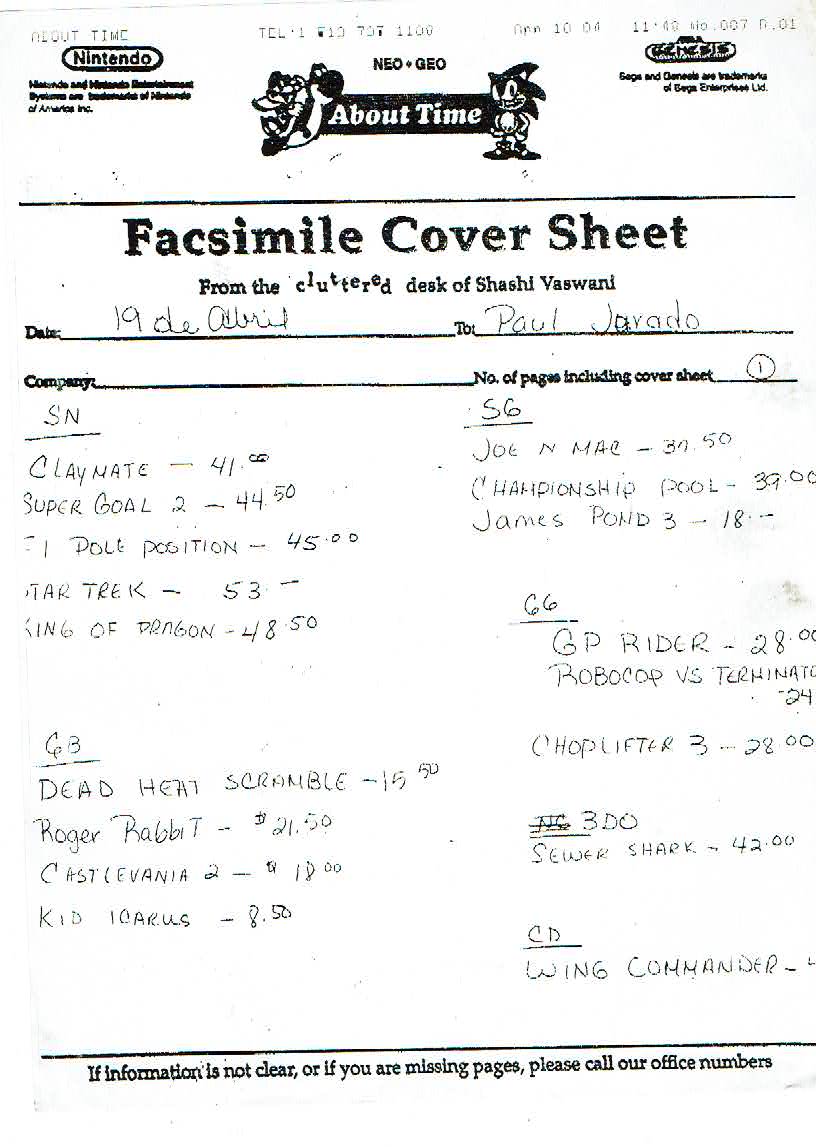 ABOUT TIME TEL:1 713 797 1100 Apr 10 04 11:40 No.007 P.01
Nintendo
NEO•GEO
GENESIS
Nintendo and Nintendo Entertainment
Systems are trademarks of Nintendo
of America Inc.
Sega and Genesis are trademarks
of Sega Enterprises Ltd.
About Time
Facsimile Cover Sheet
From the cluttered desk of Shashi Vaswani
Date: 19 de Abril To: Paul Jurado
Company: No. of pages including cover sheet 1
SN
CLAYMATE — 41.00
SUPER GOAL 2 — 44.50
F1 POLE POSITION — 45.00
STAR TREK — 53.—
KING OF DRAGON - 48.50
GB
DEAD HEAT SCRAMBLE - 15.50
Roger RabbiT - $21.50
CASTLEVANIA 2 — $ 18.00
KID ICARUS - 8.50
SG
JOE N MAC - 37.50
CHAMPIONSHIP POOL - 39.00
James POND 3 - 18.--
GG
GP RIDER - 28.00
ROBOCOP VS TERMINATO
-24
CHOPLIFTER 3 - 28.00
3DO
SEWER SHARK - 42.00
CD
WING COMMANDER - 4
If information is not clear, or if you are missing pages, please call our office numbers